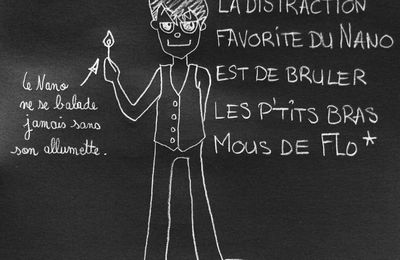 LA DISTRACTION
FAVORITE DU NANO
EST DE BRULER
LES P'TÎTS BRAS
MOUS DE FLO*
Le Nano
ne se balade
jamais sans
son allumette.